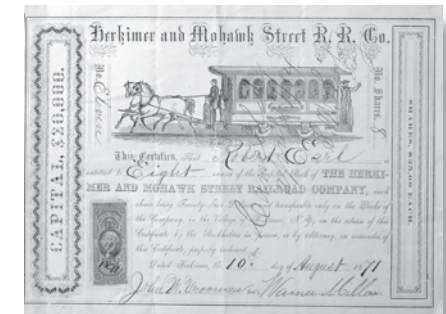 Herkimer and Mohawk Street R. R. Co.
CAPITAL, $20,000.
No. Eleven
No. Shares, 8
SHARES, $25.00 EACH.
This Certifies, That Robert Earl is
entitled to Eight shares of the Capital Stock of THE HERKI-
MER AND MOHAWK STREET RAILROAD COMPANY, each
share being Twenty-Five and transferable only on the Books of
the Company, in the Village of N. Y., on the return of this
Certificate by the Stockholder in person, or by attorney, on surrender of
this Certificate properly indorsed.
Dated Herkimer, the 10th day of August 1871
John W. Vrooman Warner Miller